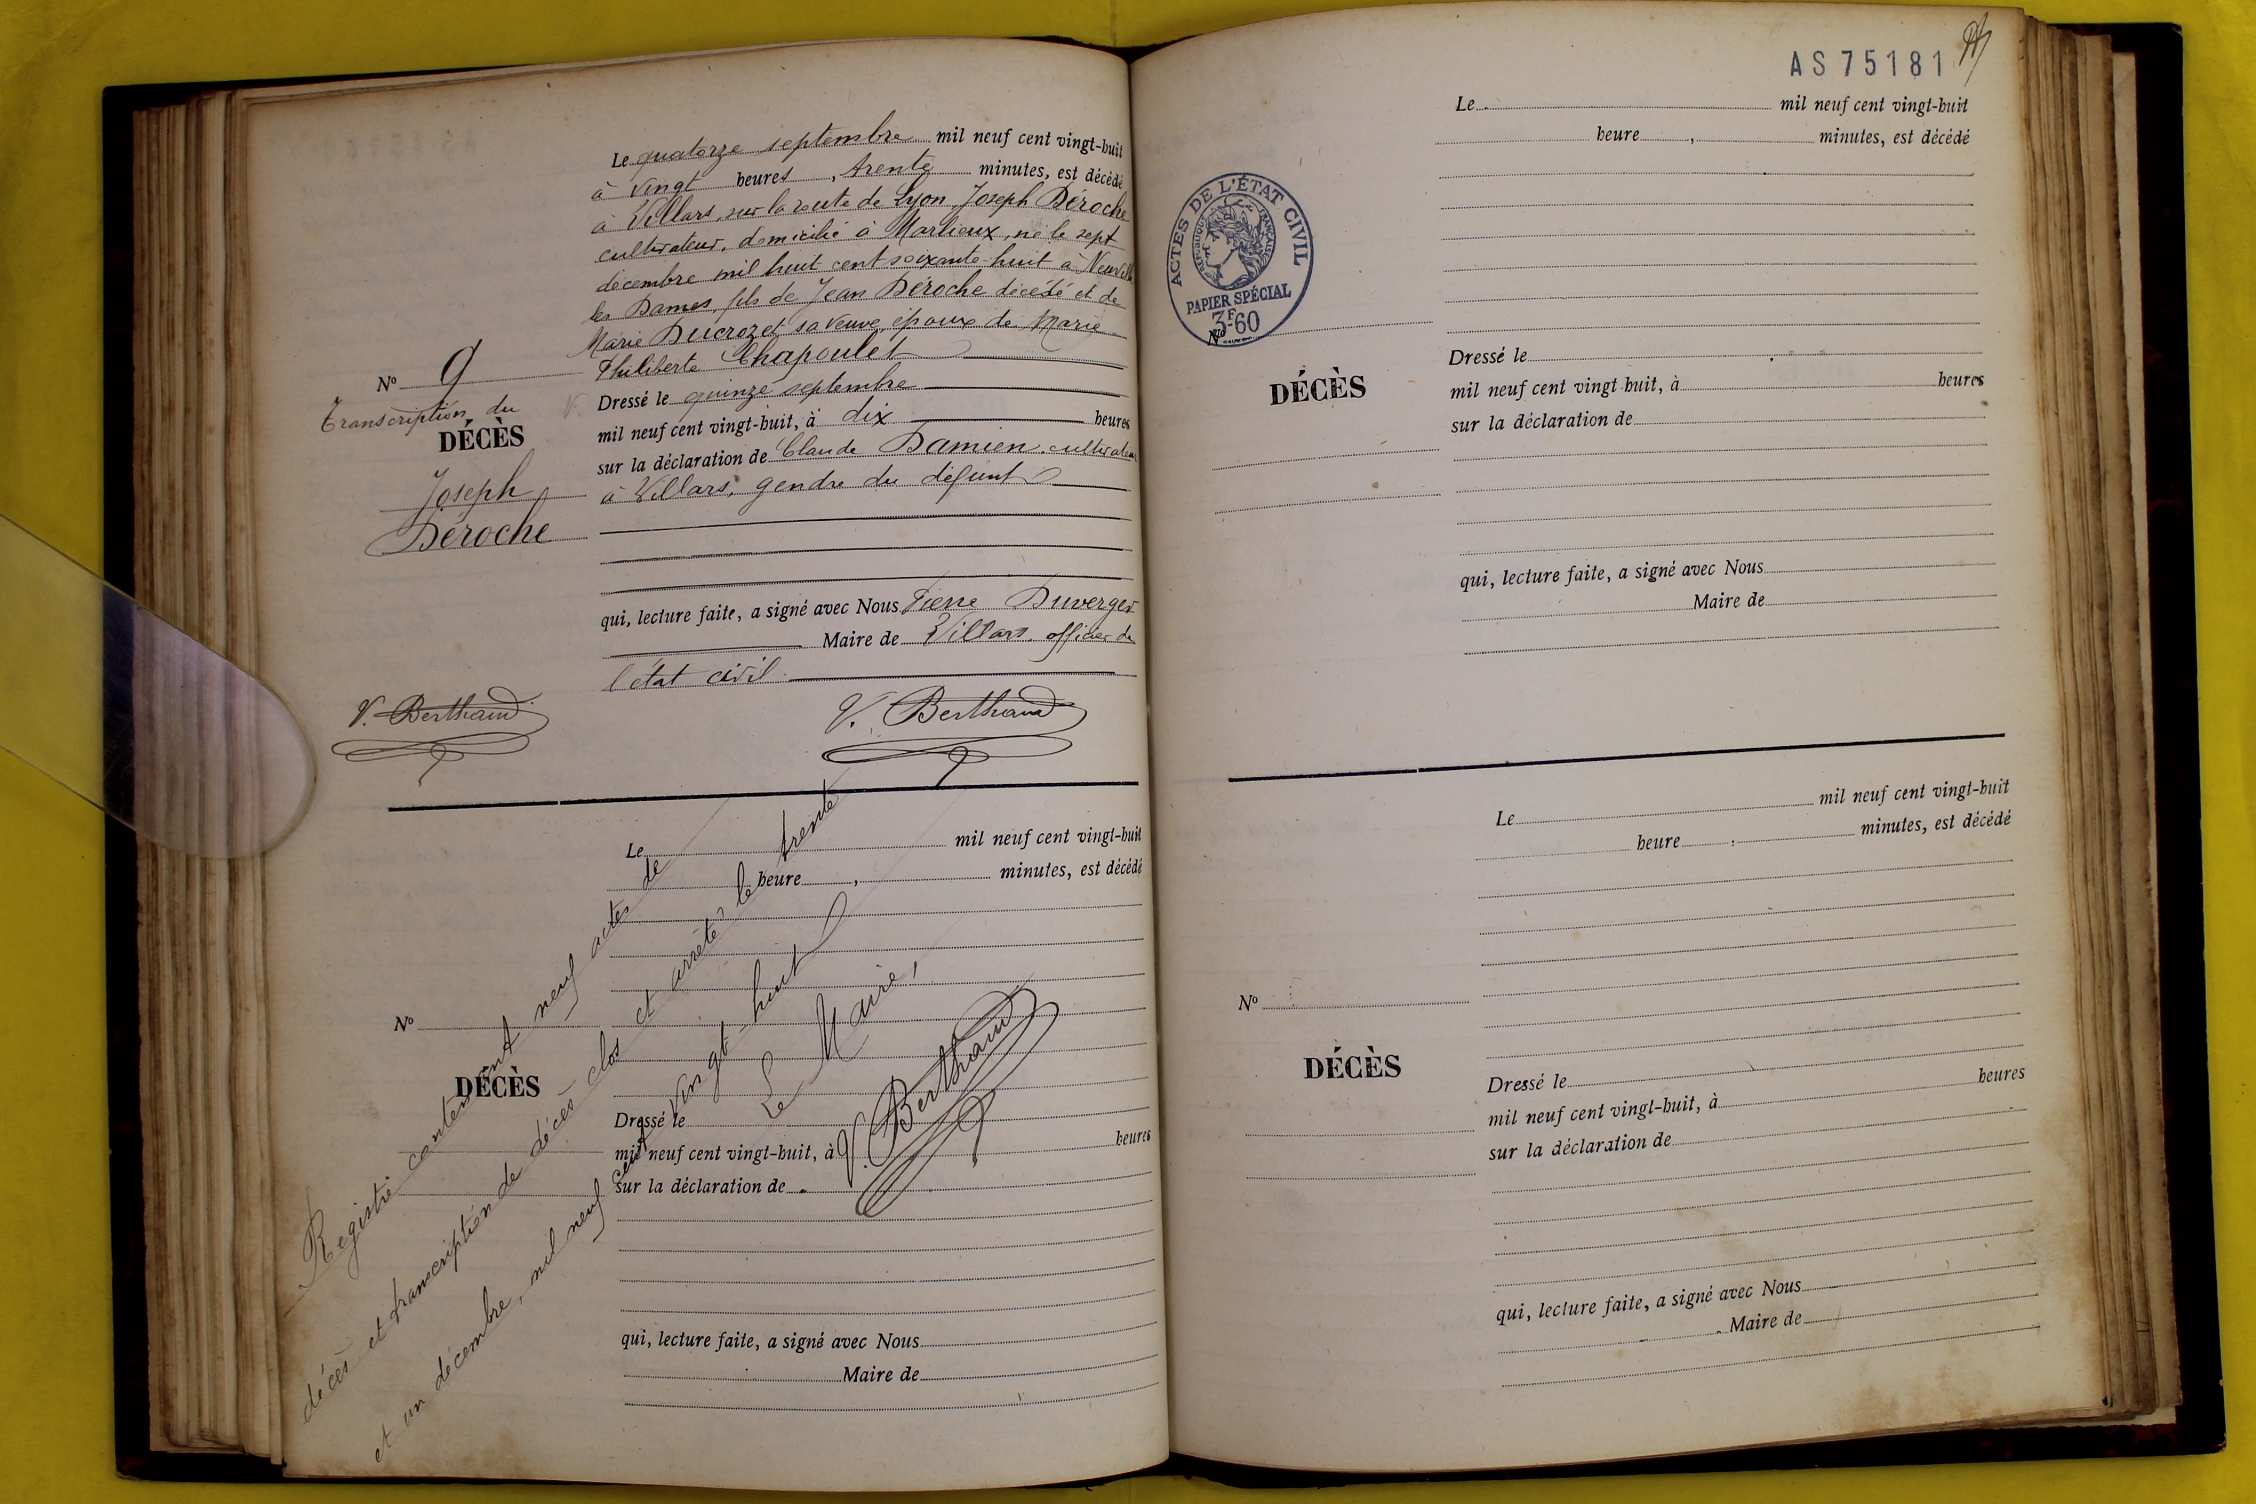 Le quatorze septembre mil neuf cent vingt-huit
à vingt heures, trente minutes, est décédé
à Villars, sur la route de Lyon, Joseph Déroche
cultivateur, domicilié à Marlieux, né le sept
décembre mil huit cent soixante-huit à Neuville
les Dames, fils de Jean Déroche décédé et de
Marie Ducrozet sa veuve, époux de Marie
Philiberte Chapoulet
Nº 9
Transcription du
DÉCÈS
Joseph
Déroche
Dressé le quinze septembre
mil neuf cent vingt-huit, à dix heures
sur la déclaration de Claude Damien, cultivateur
à Villars, gendre du défunt
qui, lecture faite, a signé avec Nous Pierre Duverger
Maire de Villars officier de
l'état civil.
V. Berthaud
V. Berthaud
Le mil neuf cent vingt-huit
heure, minutes, est décédé
Nº
DÉCÈS
Dressé le
mil neuf cent vingt-huit, à heures
sur la déclaration de
qui, lecture faite, a signé avec Nous
Maire de
Registre contenant neuf actes de
décès et transcription de décès clos et arrêté le trente
et un décembre, mil neuf cent vingt-huit
Le Maire,
V. Berthaud
AS 75181
Le mil neuf cent vingt-huit
heure, minutes, est décédé
ACTES DE L'ÉTAT CIVIL
RÉPUBLIQUE FRANÇAISE
PAPIER SPÉCIAL
3F60
Nº
DÉCÈS
Dressé le
mil neuf cent vingt huit, à heures
sur la déclaration de
qui, lecture faite, a signé avec Nous
Maire de
Le mil neuf cent vingt-huit
heure, minutes, est décédé
Nº
DÉCÈS
Dressé le
mil neuf cent vingt-huit, à heures
sur la déclaration de
qui, lecture faite, a signé avec Nous
Maire de